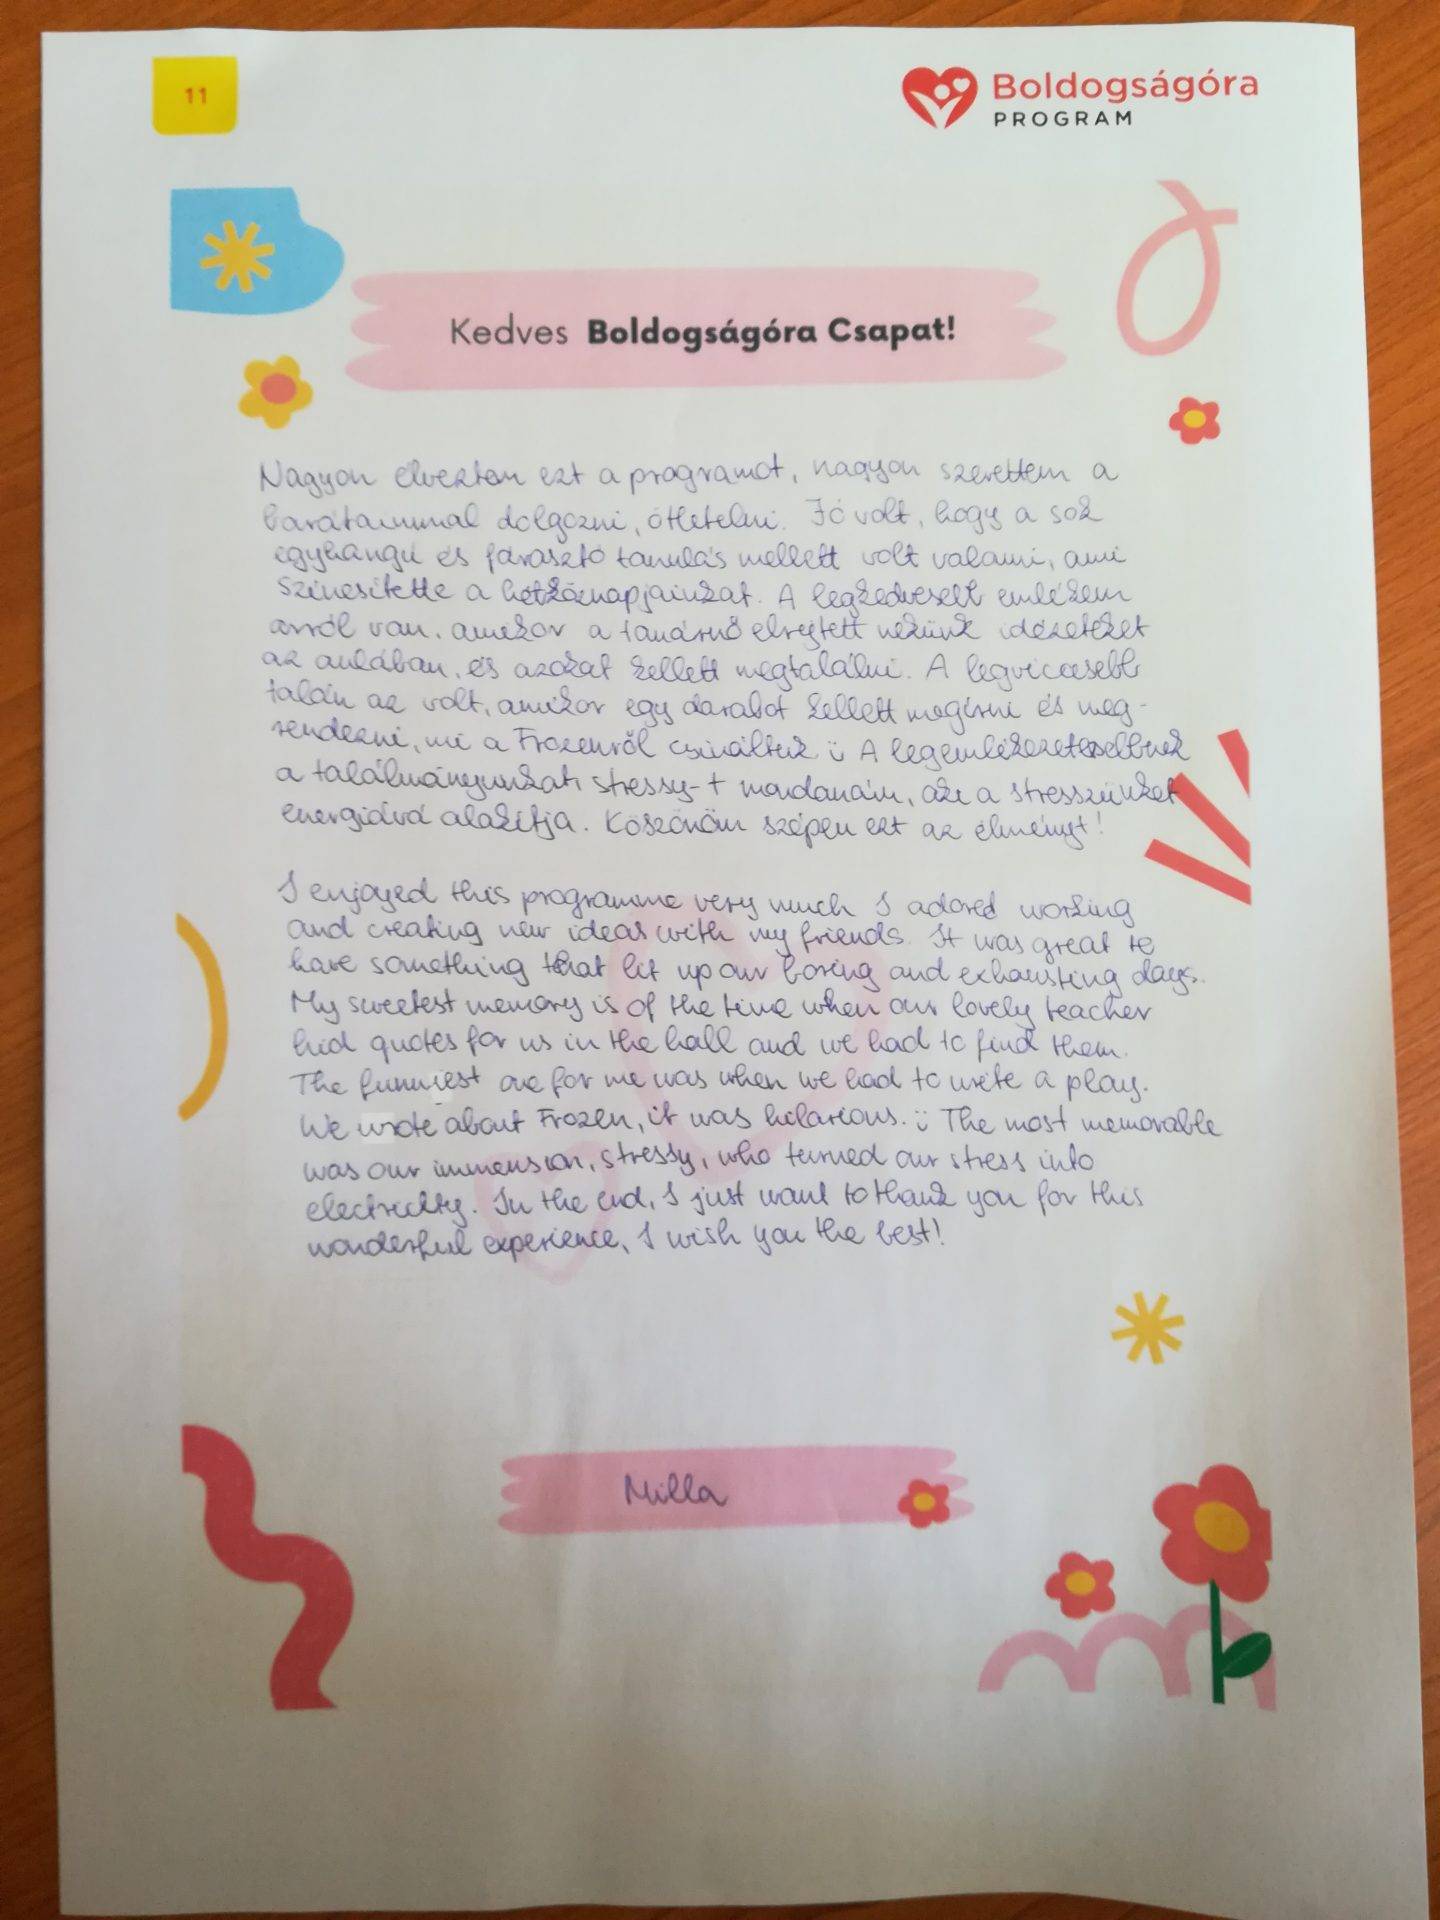 11
Boldogságóra
PROGRAM
Kedves Boldogságóra Csapat!
Nagyon élveztem ezt a programot, nagyon szerettem a
barátaimmal dolgozni, ötletelni. Jó volt, hogy a sok
egyhangú és fárasztó tanulás mellett volt valami, ami
színesítette a hétköznapjainkat. A legkedvesebb emlékem
arról van, amikor a tanárnő elrejtett nekünk idézeteket
az aulában, és azokat kellett megtalálni. A legviccesebb
talán az volt, amikor egy darabot kellett megírni és meg-
rendezni, mi a Frozenről csináltuk ü A legemlékezetesebbnek
a találmányunkat, stressy-t mondanám, aki a stresszünket
energiává alakítja. Köszönöm szépen ezt az élményt!
I enjoyed this programme very much I adored working
and creating new ideas with my friends. It was great to
have something that lit up our boring and exhausting days.
My sweetest memory is of the time when our lovely teacher
hid quotes for us in the hall and we had to find them.
The funniest one for me was when we had to write a play.
We wrote about Frozen, it was hilarious. ü The most memorable
was our immension, stressy, who turned our stress into
electricity. In the end, I just want to thank you for this
wonderful experience, I wish you the best!
Milla